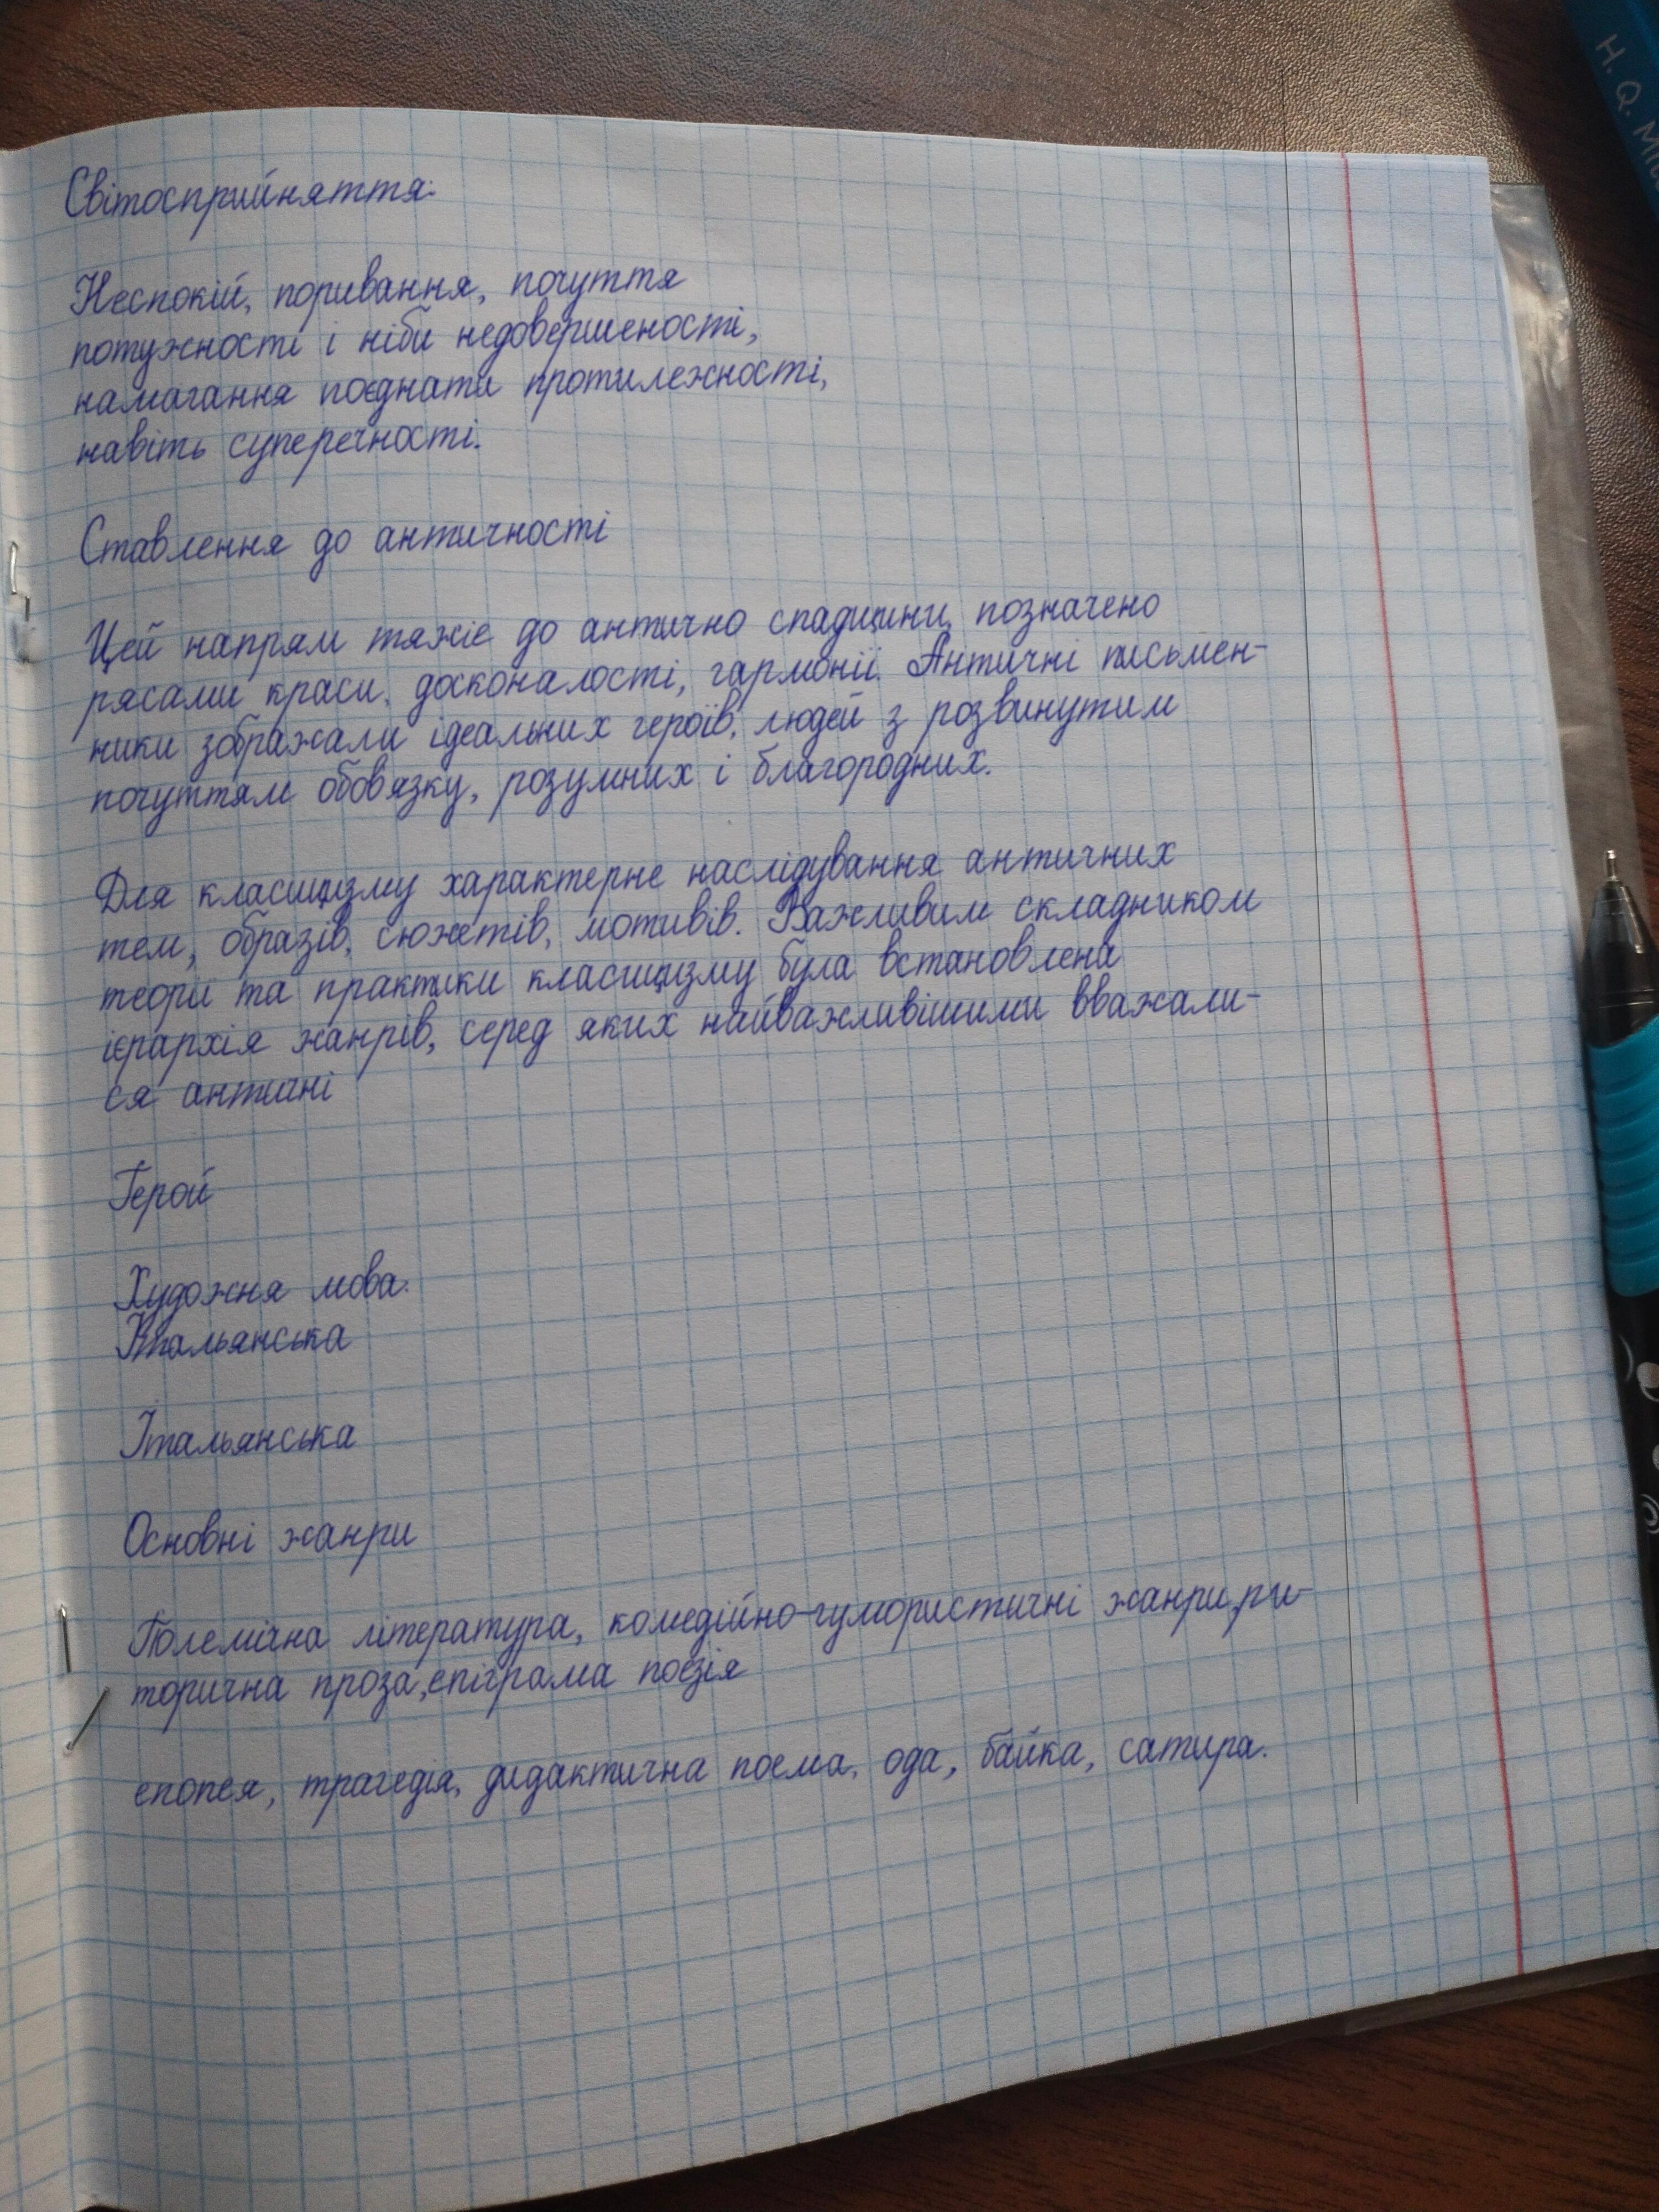 Світосприйняття:
Неспокій, поривання, почуття
потужності і ніби недовершеності,
намагання поєднати протилежності,
навіть суперечності.
Ставлення до античності
Цей напрям тяжіє до антично спадщини, позначено
рясами краси, досконалості, гармонії. Античні письмен-
ники зображали ідеальних героїв, людей з розвинутим
почуттям обов'язку, розумних і благородних.
Для класицизму характерне наслідування античних
тем, образів, сюжетів, мотивів. Важливим складником
теорії та практики класицизму була встановлена
ієрархія жанрів, серед яких найважливішими вважали-
ся античні
Герой
Художня мова:
Італьянська
Італьянська
Основні жанри
Полемічна література, комедійно-гумористичні жанри, ри-
торична проза, епіграма поезія
епопея, трагедія, дидактична поема, ода, байка, сатира.
H. Q.